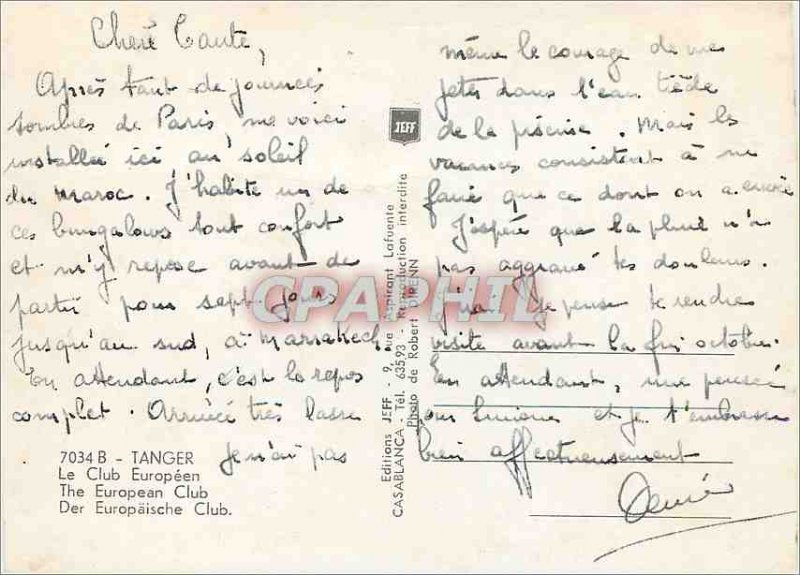 Chère Tante,
Après tant de journées
sombres de Paris, me voici
installée ici au soleil
du Maroc. J'habite un de
ces bungalows tout confort
et m'y repose avant de
partir pour sept jours
jusqu'au sud, à Marrakech.
En attendant, c'est le repos
complet. Arrivée très lasse
je n'ai pas
7034 B - TANGER
Le Club Européen
The European Club
Der Europäische Club.
JEFF
Editions JEFF - 9, rue Aspirant Lafuente
CASABLANCA - Tél. 635.93 - Reproduction interdite
Photo de Robert DIRENN
CPAPHIL
même le courage de me
jeter dans l'eau tiède
de la piscine. Mais les
vacances consistent à ne
faire que ce dont on a envie
J'espère que la pluie n'a
pas aggravé tes douleurs.
J'irai je pense te rendre
visite avant la fin octobre.
En attendant, une pensée
pour Simone et je t'embrasse
bien affectueusement